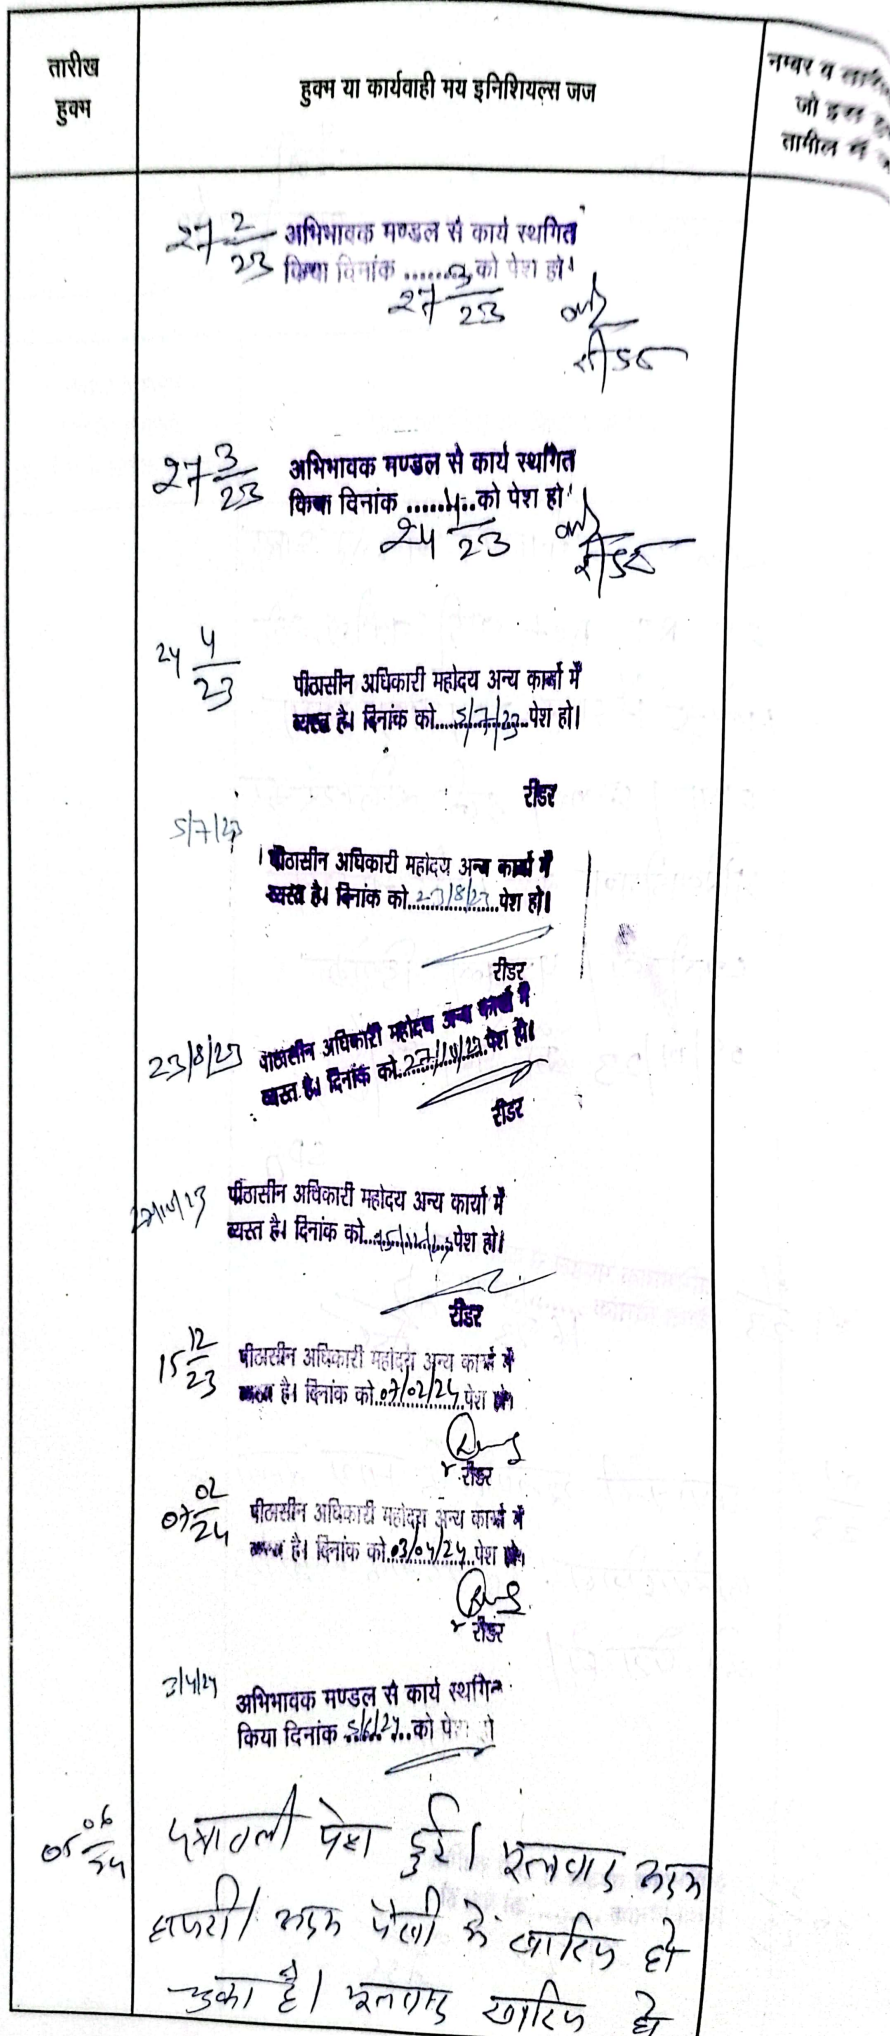 तारीख
हुक्म
हुक्म या कार्यवाही मय इनिशियल्स जज
नम्बर व
जो इस
तामील में
27 2/23 अभिभावक मण्डल से कार्य स्थगित
किया दिनांक ........ को पेश हो
27 3/23
रीडर
27 3/23 अभिभावक मण्डल से कार्य स्थगित
किया दिनांक ........ को पेश हो
24 4/23
रीडर
24 4/23
पीठासीन अधिकारी महोदय अन्य कार्यो में
व्यस्त है। दिनांक को....5/7/23..पेश हो।
रीडर
5/7/23
पीठासीन अधिकारी महोदय अन्य कार्यो में
व्यस्त है। दिनांक को.23/8/23..पेश हो।
रीडर
23/8/23 पीठासीन अधिकारी महोदय अन्य कार्यो में
व्यस्त है। दिनांक को..27/10/23..पेश हो।
रीडर
27/10/23 पीठासीन अधिकारी महोदय अन्य कार्यो में
व्यस्त है। दिनांक को..15/12/23..पेश हो।
रीडर
15 12/23 पीठासीन अधिकारी महोदय अन्य कार्यो में
व्यस्त है। दिनांक को.07/02/24..पेश हो।
रीडर
07 02/24 पीठासीन अधिकारी महोदय अन्य कार्यो में
व्यस्त है। दिनांक को.03/04/24..पेश हो।
रीडर
3/4/24 अभिभावक मण्डल से कार्य स्थगित
किया दिनांक .5/6/24..को पेश हो
05 06/24 पत्रावली पेश हुई। मूलवाद अदम
हाजरी/ अदम पैरवी में खारिज हो
चुका है। मूलवाद खारिज हो